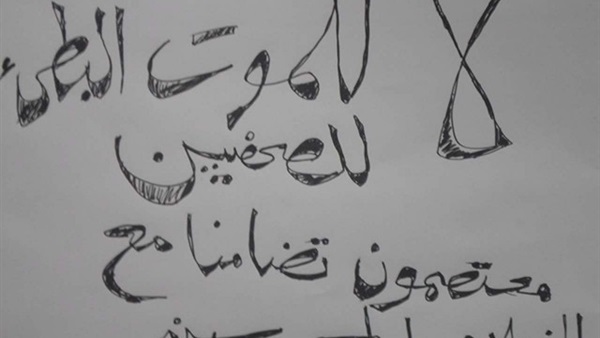 لا للموت البطئ
للصحفيين
معتصمون تضامنا مع